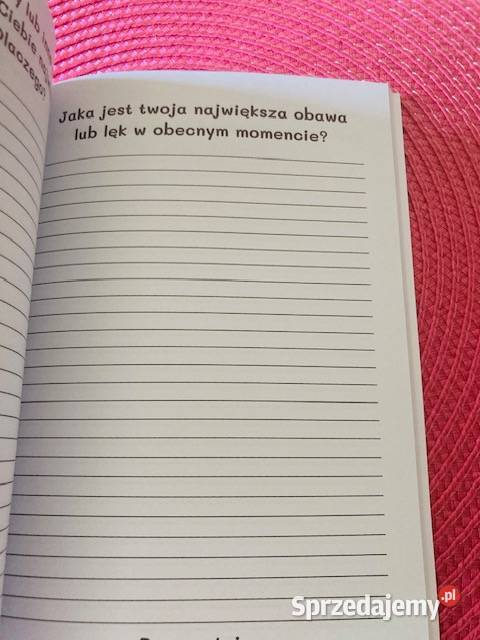 y lub
Ciebie
dlaczego?
Jaka jest twoja największa obawa
lub lęk w obecnym momencie?
Sprzedajemy.pl